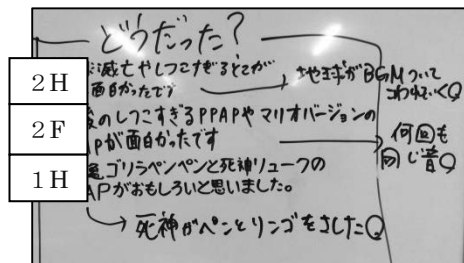 どうだった?
2H
滅亡やしつこすぎるとこが
面白かったです
地球がBGMついて
こわれていくQ
2F
のしつこすぎるPPAPやマリオバージョンの
APが面白かったです
何回も
同じ音Q
1H
ゴリラペンペンと死神リュークの
APがおもしろいと思いました。
死神がペンとリンゴをさしたQ